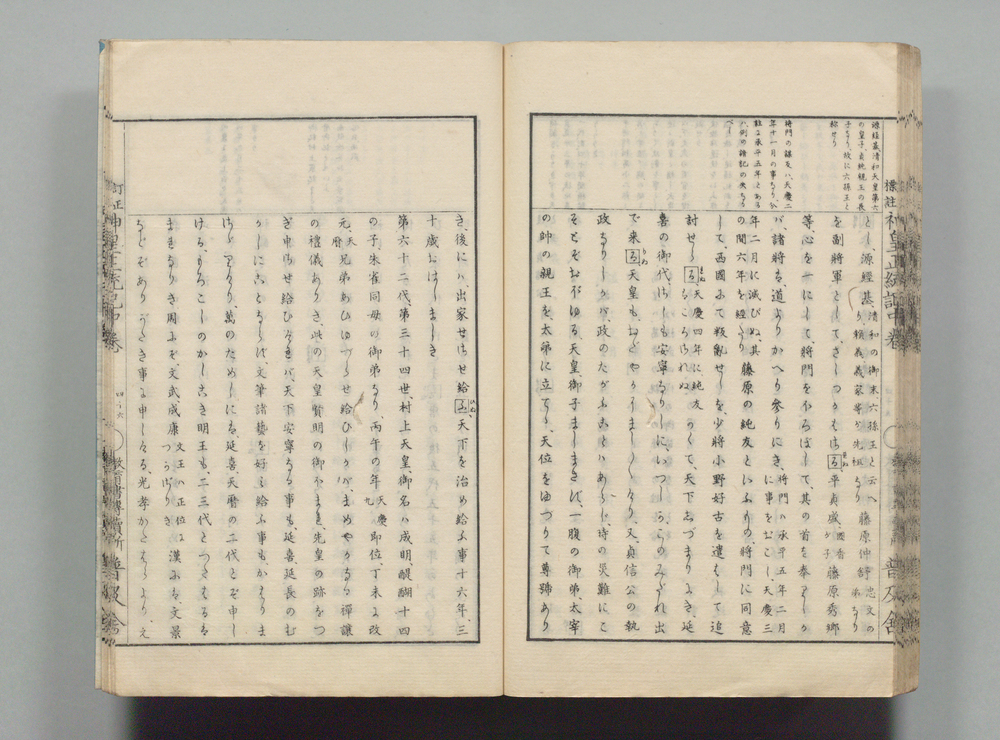 標註神皇正統記中卷
源經基清和天皇第六
の皇子、貞純親王の長
子なり、故に六孫王と
稱せり
將門の謀反ハ天慶二
年十一月の事なり、
註る承平五年とある
八例の
べし
とし、源經基、清和の御末六孫王と云へ
藤原仲舒、忠文の
弟なり
を副將軍として、さしつかはさる、平貞盛、國香
が子
藤原秀郷
等、心を一にして、將門をほろぼして、其の首を奉りしか
バ、諸將ハ道よりかへり參りにき、將門ハ承平五年二月
に事をおこし、天慶三
年二月に滅びぬ、其
の間六年を經たり
藤原の純友といふもの、將門に同意
して、西國にて叛亂せしを、少將小野好古を遣はして追
討せし
天慶四年に純友
ハころされぬ
かくて、天下しづまりにき、延
喜の御代さしも安寧なりしに、いつしかこのみだれ出
で來
天皇もおだやかにましましけり、又貞信公の執
政なりしかバ、政のたがふことハあらじ、時の災難にこ
そとぞおぼゆる、天皇御子ましまさねば、一腹の御弟、太宰
の帥の親王を、太弟に立てて、天位をゆづりて尊號あり
き、後にハ出家せさせ給
天下を治め給ふ事十六年、三
十歳おはしましき
第六十二代、第三十四世、村上天皇、御名ハ成明、醍醐十四
の子、朱雀同母の御弟なり、丙午の年、天慶
九
即位、丁未に改
元、天
曆
兄弟あひゆづらせ給ひしかバ、まめやかなる禪讓
の禮儀ありき、此の天皇賢明の御ほまれ、先皇の跡をつ
ぎ申させ給ひければ、天下安寧なる事も、延喜、延長のむ
かしにことならず、文筆諸藝を好み給ふ事も、かはりま
さざりけり、萬のためしにハ延喜、天曆の二代とぞ申し
ける、もろこしのかしこき明王も、二三代とつたはるハ
まれなりき、周にぞ文武成康
文王ハ正位に
つかざりき
漢にハ文景
などぞありがたき事に申しける、光孝かたはらより、え
訂正神皇正統記中卷
普及舍